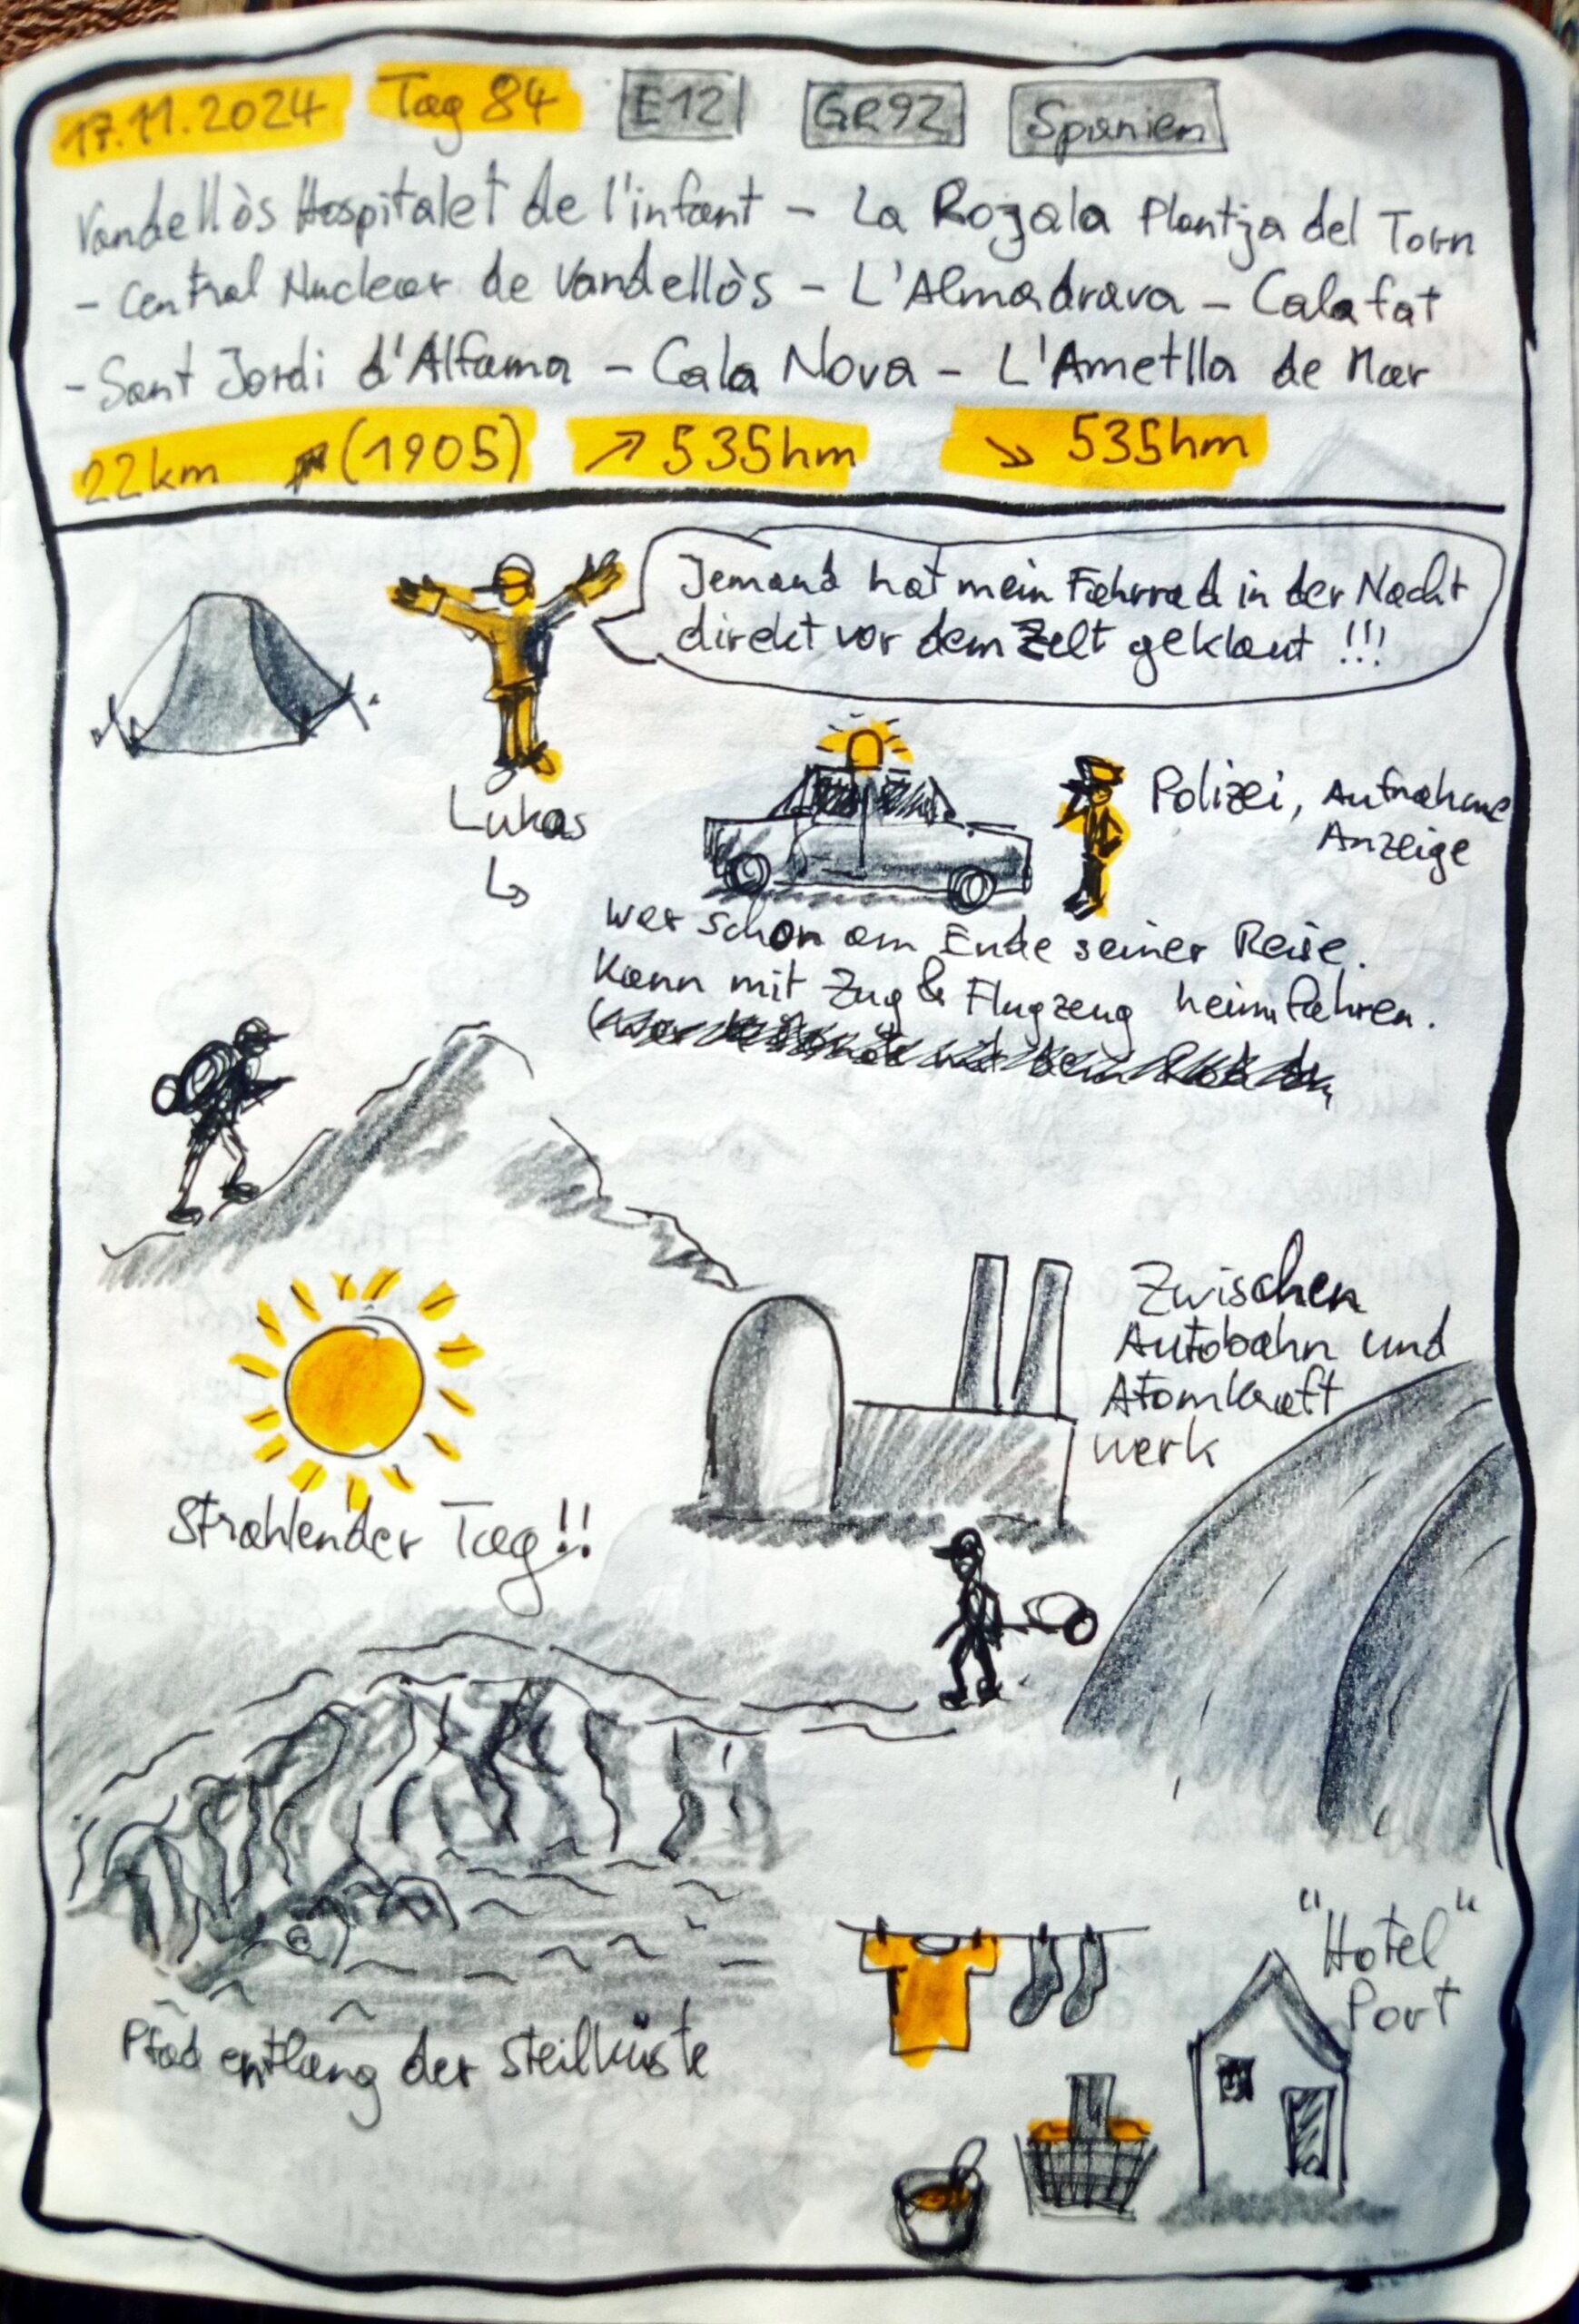 17.11.2024 Tag 84 E12 GR92 Spanien
Vandellòs Hospitalet de l'infant - La Rojala Plantja del Torn
- Central Nuclear de Vandellòs - L'Almadrava - Calafat
- Sant Jordi d'Alfama - Cala Nova - L'Ametlla de Mar
22km (1905) ↗ 535hm ↘ 535hm
Jemand hat mein Fahrrad in der Nacht
direkt vor dem Zelt geklaut !!!
Lukas
↳
Polizei, Aufnahme
Anzeige
War schon am Ende seiner Reise.
Kann mit Zug & Flugzeug heimfahren.
Zwischen
Autobahn und
Atomkraft
werk
Strahlender Tag!!
Pfad entlang der Steilküste
"Hotel"
Port